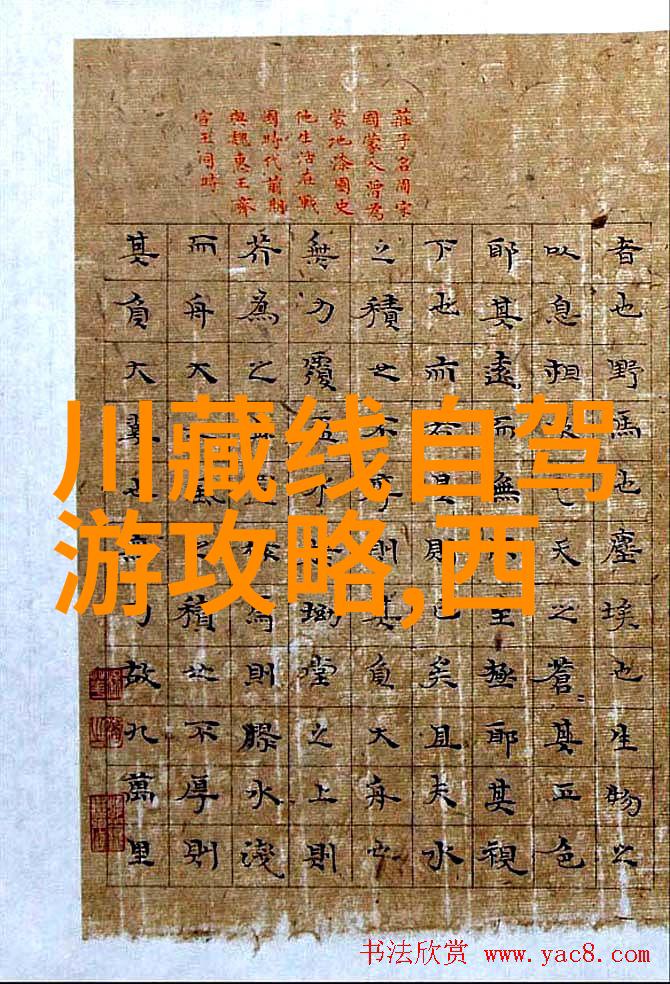 莊子名周宋
國蒙人曾為
蒙地漆園史
他生活在戰
國時代前期
與魏惠王齊
宣王同時
者也野馬也塵埃也生物之
以息相吹也天之蒼〻其正色
耶其遠而無所至極耶其視
下也而若是則已矣且夫水
之積也不厚則其負大舟也
無力覆杯水於坳堂之上則
芥為之置杯焉則膠水淺
而舟大也風之積也不厚則
其負大翼也無力故九萬里
川藏线自驾
游攻略,西
书法欣赏 www.yac8.com